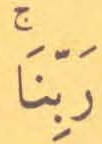 رَبِّنَاۚ